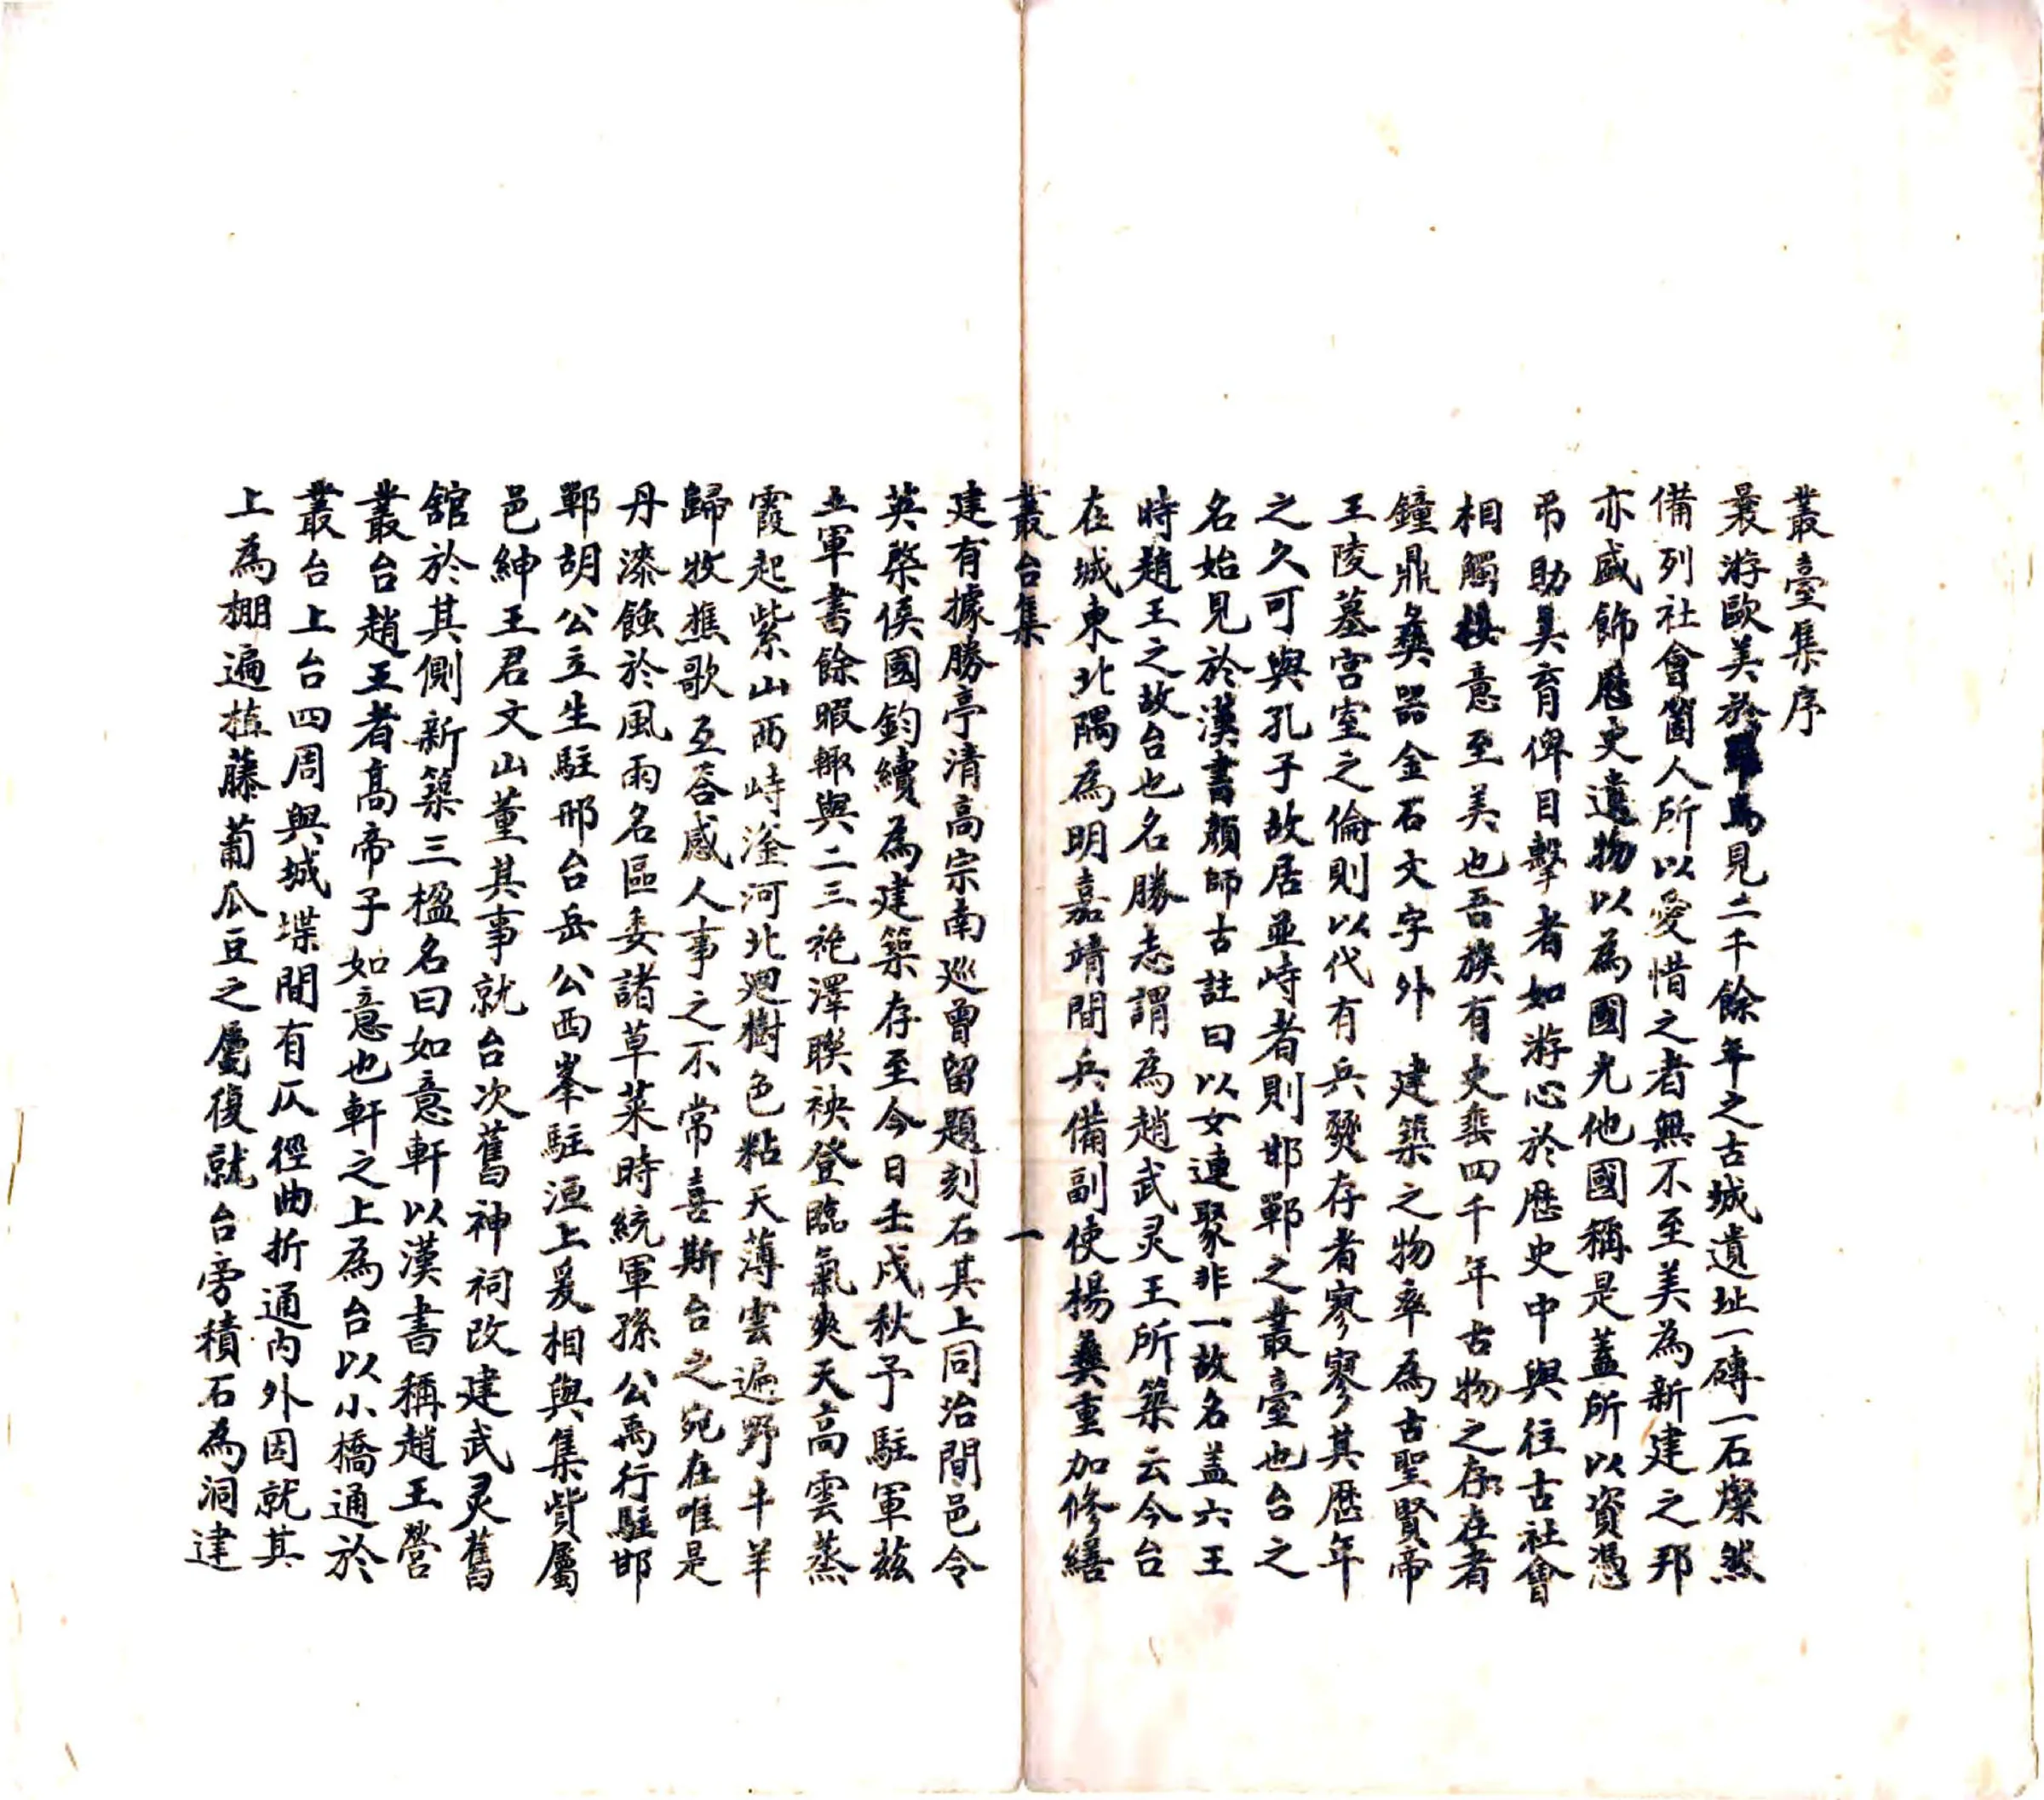 叢臺集序
曩游歐美於羅馬見二千餘年之古城遺址一磚一石燦然
備列社會箇人所以愛惜之者無不至美為新建之邦
亦盛飾歷史遺物以為國光他國稱是蓋所以資憑
弔助美育俾目擊者如游心於歷史中與往古社會
相觸接意至美也吾族有史垂四千年古物之存在者
鐘鼎彝器金石文字外建築之物率為古聖賢帝
王陵墓宮室之倫則以代有兵燹存者寥寥其歷年
之久可與孔子故居並峙者則邯鄲之叢臺也台之
名始見於漢書顏師古註曰以女連聚非一故名盖六王
時趙王之故台也名勝志謂為趙武灵王所築云今台
在城東北隅為明嘉靖間兵備副使楊彝重加修繕
叢台集 一
建有據勝亭清高宗南巡曾留題刻石其上同治間邑令
英棨侯國鈞續為建築存至今日壬戌秋予駐軍茲
土軍書餘暇輒與二三袍澤聯袂登臨氣爽天高雲蒸
霞起紫山西峙滏河北迴樹色粘天薄雲遍野牛羊
歸牧樵歌互答感人事之不常喜斯台之宛在唯是
丹漆蝕於風雨名區委諸草萊時統軍孫公禹行駐邯
鄲胡公立生駐邢台岳公西峯駐洹上爰相與集貲屬
邑紳王君文山董其事就台次舊神祠改建武灵舊
館於其側新築三楹名曰如意軒以漢書稱趙王營
叢台趙王者高帝子如意也軒之上為台以小橋通於
叢台上台四周與城堞間有仄徑曲折通內外因就其
上為棚遍植藤葡瓜豆之屬復就台旁積石為洞建